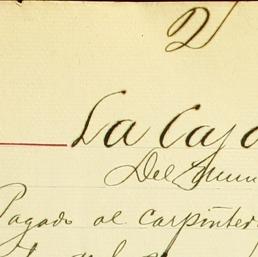 2
La Caja
Del muni
Pagado al carpinter